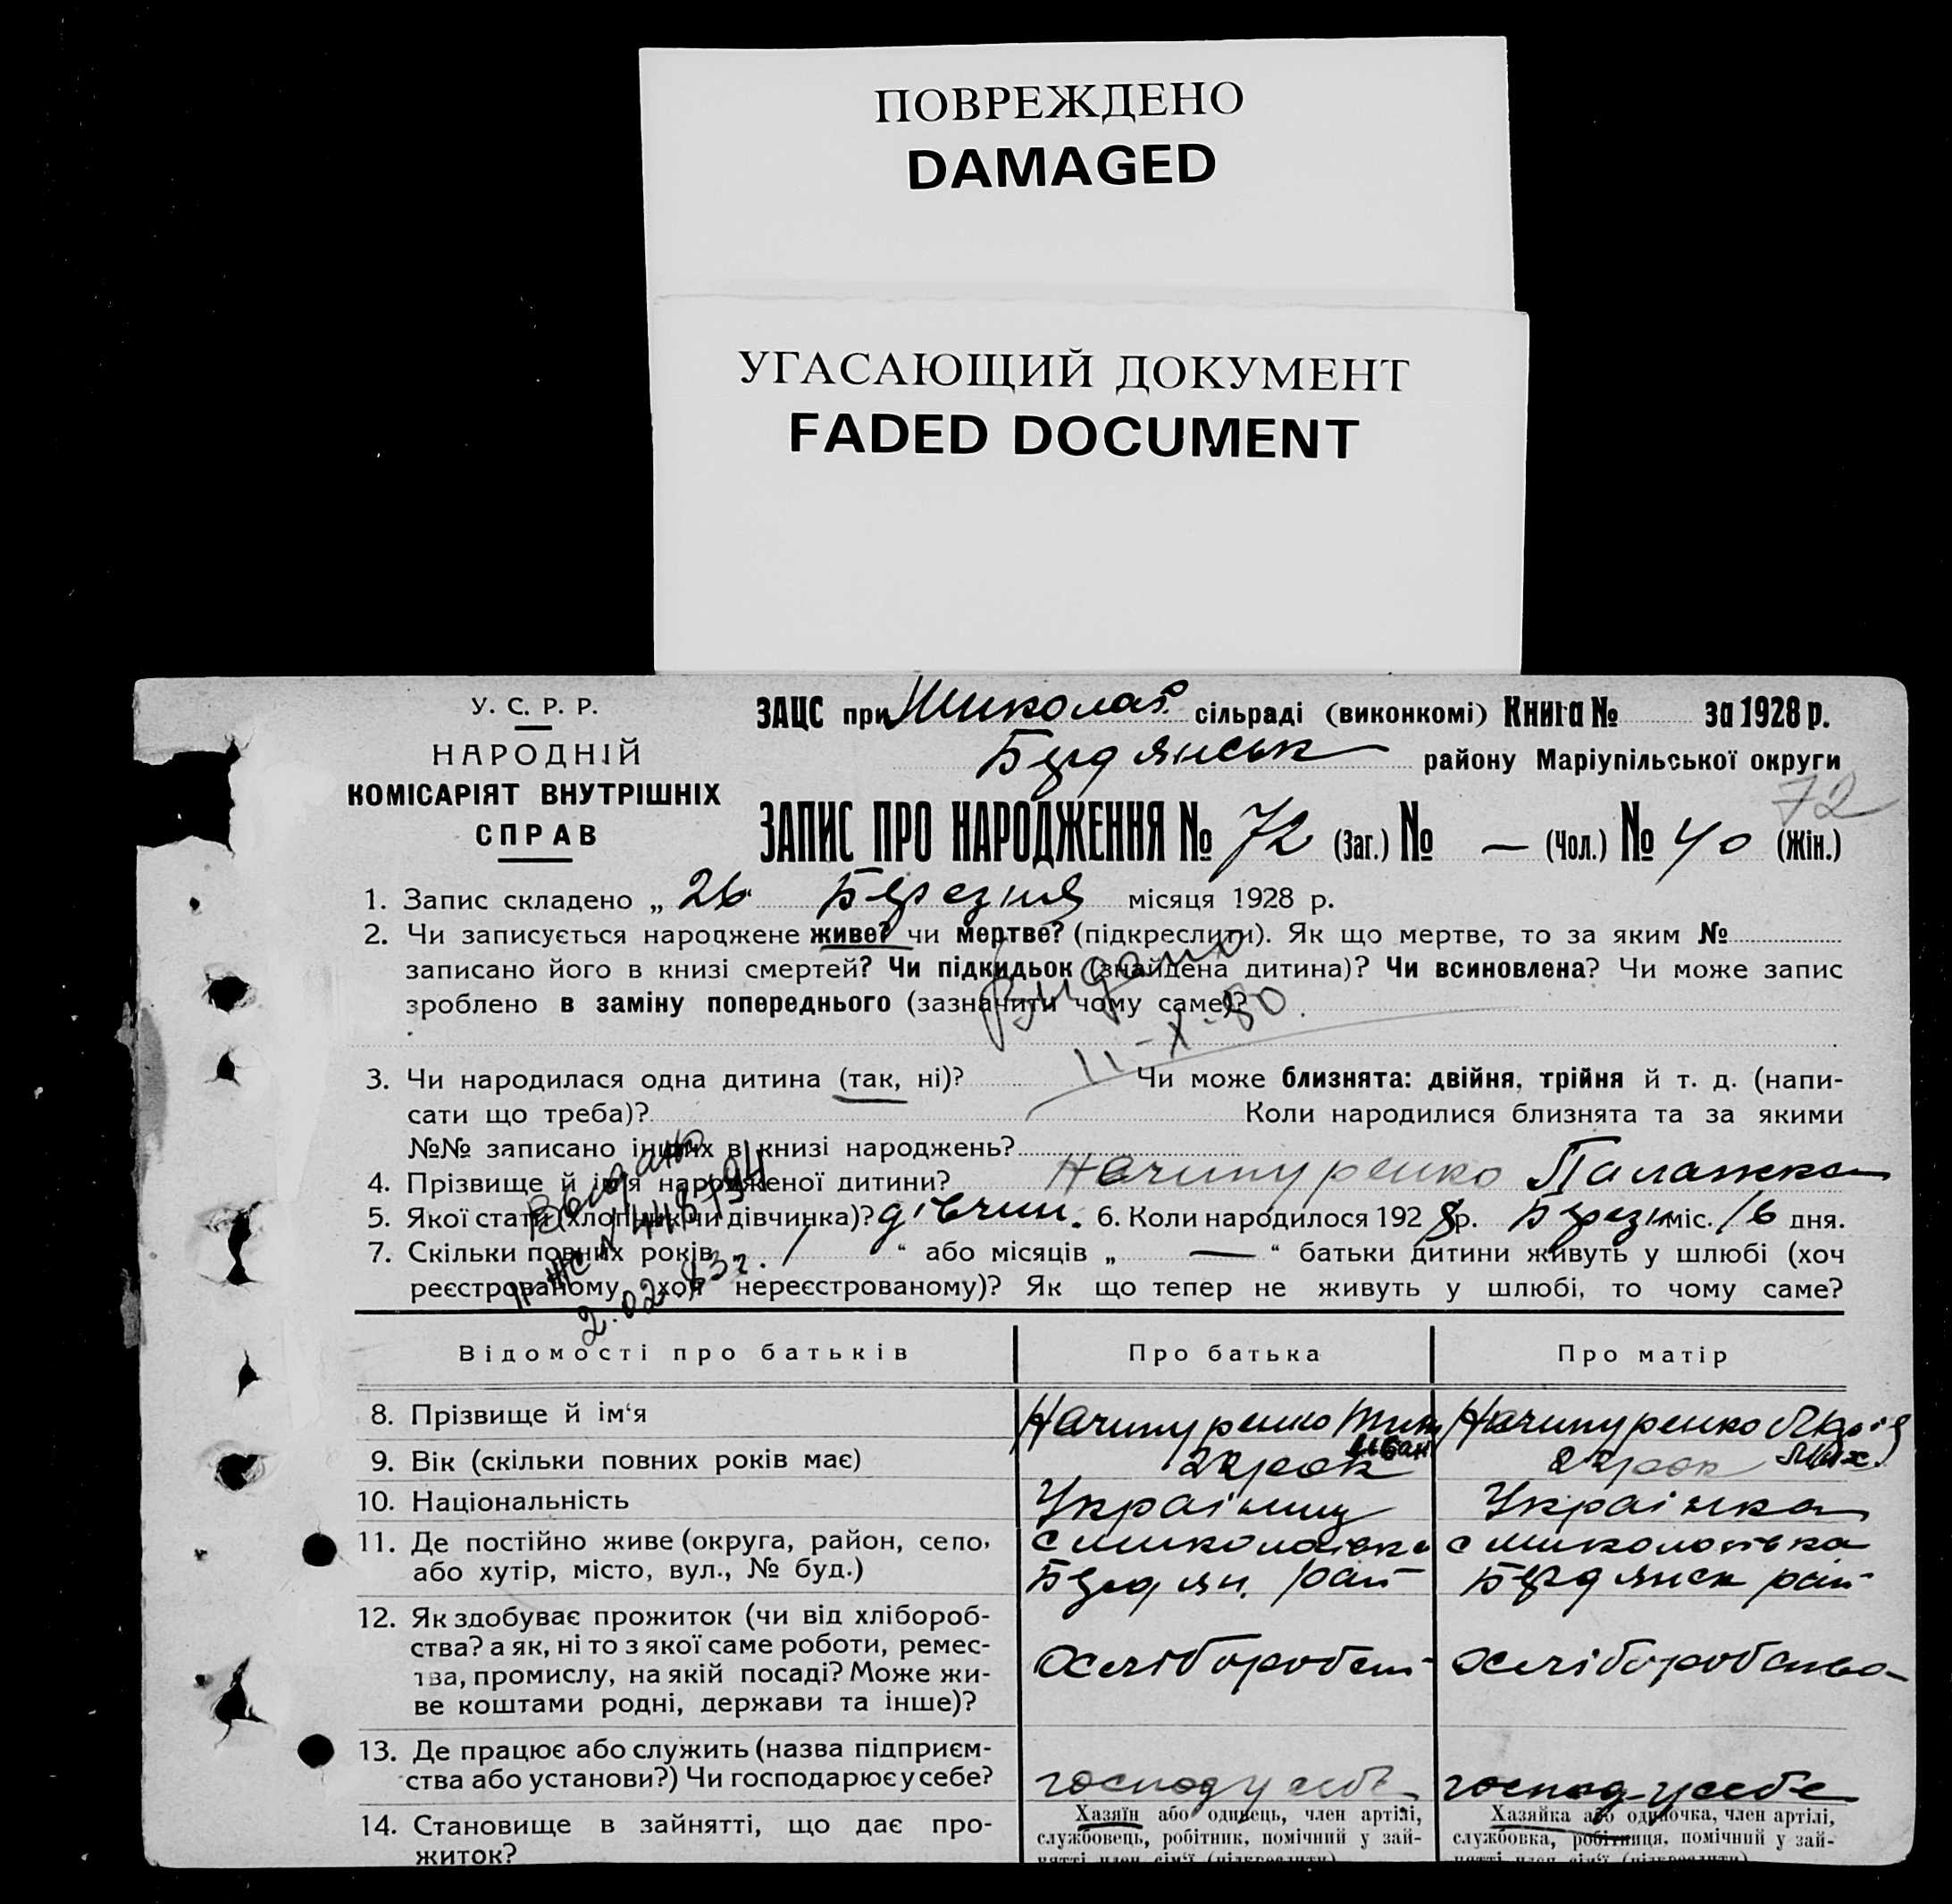 ПОВРЕЖДЕНО
DAMAGED
УГАСАЮЩИЙ ДОКУМЕНТ
FADED DOCUMENT
У. С. Р. Р.
НАРОДНІЙ
КОМІСАРІЯТ ВНУТРІШНІХ
СПРАВ
ЗАЦС при Миколаїв. сільраді (виконкомі) Книга № за 1928 р.
Бердянськ району Маріупільської округи
72
ЗАПИС ПРО НАРОДЖЕННЯ № 72 (Заг.) № — (Чол.) № 40 (Жін.)
1. Запис складено „ 26 “ Березня місяця 1928 р.
2. Чи записується народжене живе? чи мертве? (підкреслити). Як що мертве, то за яким №
записано його в книзі смертей? Чи підкидьок (знайдена дитина)? Чи всиновлена? Чи може запис
зроблено в заміну попереднього (зазначити чому саме)?
Видано
11-X-50
3. Чи народилася одна дитина (так, ні)? Чи може близнята: двійня, трійня й т. д. (напи-
сати що треба)? Коли народилися близнята та за якими
№№ записано інших в книзі народжень?
4. Прізвище й ім'я народженої дитини? Начипуренко Палажка
5. Якої стати (хлопчик чи дівчинка)? дівчин. 6. Коли народилося 1928 р. Березн міс. 16 дня.
7. Скільки повних років „ 1 “ або місяців „ — “ батьки дитини живуть у шлюбі (хоч
реєстрованому, хоч нереєстрованому)? Як що тепер не живуть у шлюбі, то чому саме?
Выдано
2.02.
Відомості про батьків Про батька Про матір
8. Прізвище й ім'я Начипуренко Начипуренко
Иван Мих.
9. Вік (скільки повних років має) 22 рок 22 рок
10. Національність Українец Українка
11. Де постійно живе (округа, район, село, с Миколаївка с Миколаївка
або хутір, місто, вул., № буд.) Бердян. рай Бердянск рай
12. Як здобуває прожиток (чи від хлібороб-
ства? а як, ні то з якої саме роботи, ремес-
тва, промислу, на якій посаді? Може жи-
ве коштами родні, держави та інше)?
Хліборобст Хліборобство
13. Де працює або служить (назва підприєм-
ства або установи?) Чи господарює у себе? господ у себе господ у себе
14. Становище в зайнятті, що дає про-
житок?
Хазяїн або одинець, член артілі,
службовець, робітник, помічний у зай-
нятті член сім'ї (підкреслити)
Хазяйка або одиночка, член артілі,
службовка, робітниця, помічний у зай-
нятті член сім'ї (підкреслити)